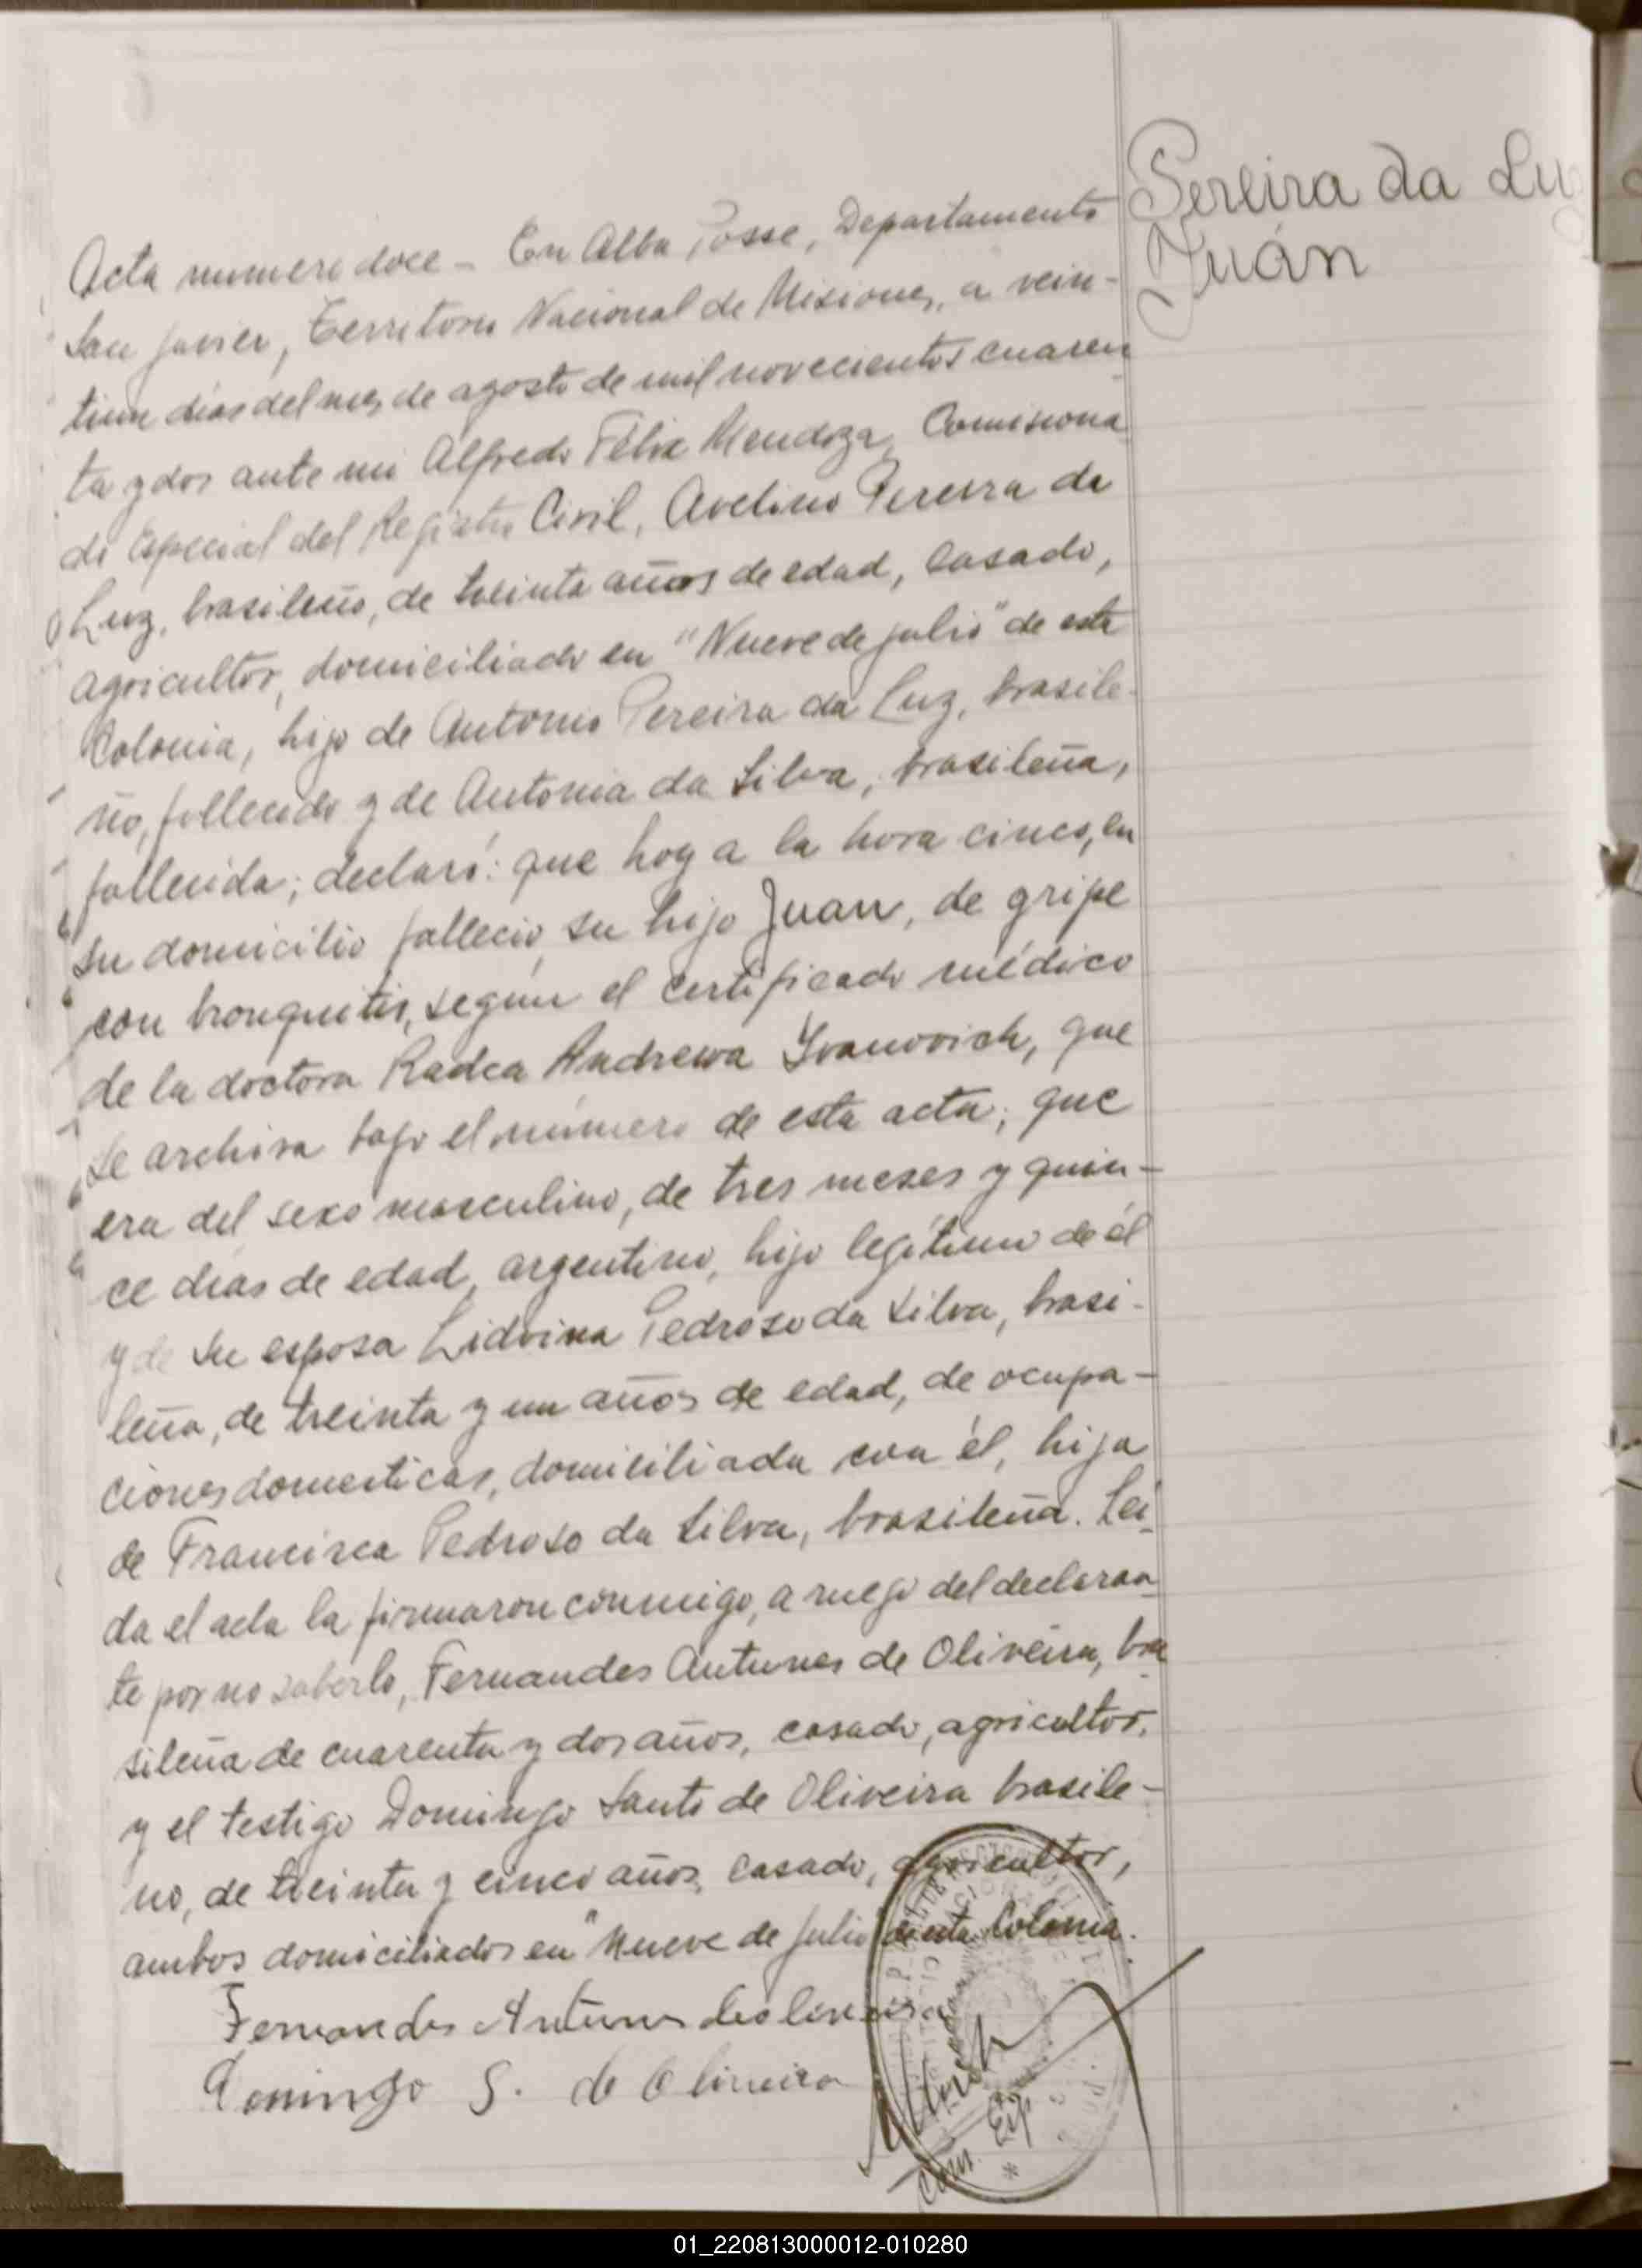 Pereira da Lu
Juán
Acta numero doce - En Alba Posse, Departamento
San Javier, Territorio Nacional de Misiones, a vein-
tiun dias del mes de agosto de mil novecientos cuaren
ta y dos ante mi Alfredo Félix Mendoza, Comisiona
do Especial del Registro Civil, Avelino Pereira da
Luz, brasileño, de treinta años de edad, casado,
agricultor, domiciliado en "Nueve de julio" de esta
Colonia, hijo de Antonio Pereira da Luz, brasile-
ño, fallecido y de Antonia da Silva, brasileña,
fallecida; declaró: que hoy a la hora cinco, en
su domicilio falleció su hijo Juan, de gripe
con bronquitis, según el certificado médico
de la doctora Radca Andrewa Yvanovich, que
se archiva bajo el número de esta acta; que
era del sexo masculino, de tres meses y quin-
ce dias de edad, argentino, hijo legítimo de él
y de su esposa Lidvina Pedroso da Silva, brasi-
leña, de treinta y un años de edad, de ocupa-
ciones domesticas, domiciliada con él, hija
de Francisca Pedroso da Silva, brasileña. Leí
da el acta la firmaron conmigo, a ruego del declaran
te por no saberlo, Fernandes Antunes de Oliveira, bra
sileña de cuarenta y dos años, casado, agricultor,
y el testigo Domingo Santo de Oliveira brasile-
no, de treinta y cinco años, casado, agricultor,
ambos domiciliados en "Nueve de Julio" de esta Colonia.
Fernandes Antunes deoliveira
Domingo S. de Oliveira
Com. Esp
01_220813000012-010280